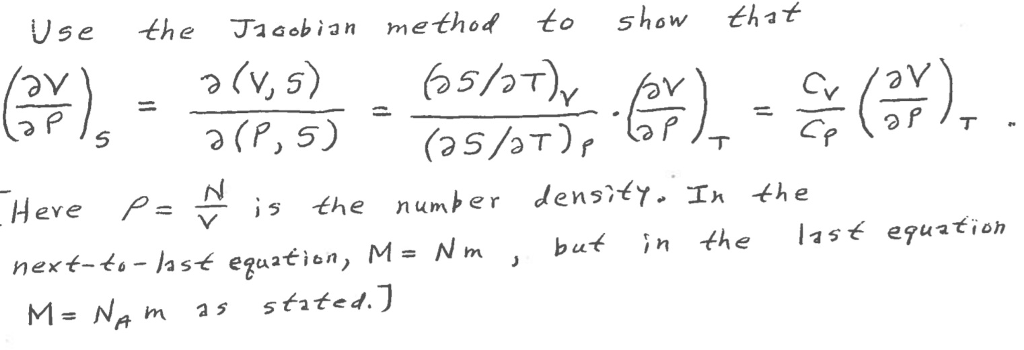 Use the Jacobian method to show that
(∂V/∂P)_S = ∂(V,S)/∂(P,S) = (∂S/∂T)_V/(∂S/∂T)_P · (∂V/∂P)_T = C_V/C_P (∂V/∂P)_T .
[Here ρ = N/V is the number density. In the
next-to-last equation, M = Nm , but in the last equation
M = N_A m as stated.]